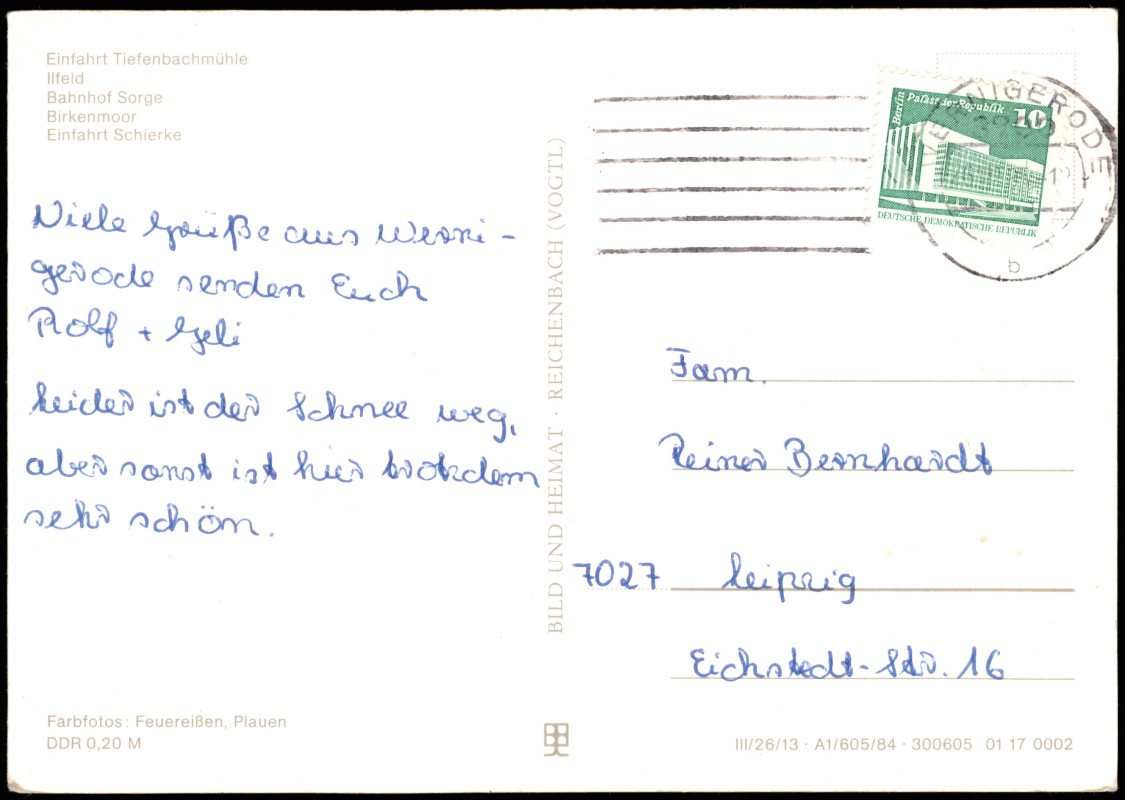 Einfahrt Tiefenbachmühle
Ilfeld
Bahnhof Sorge
Birkenmoor
Einfahrt Schierke
Viele Grüße aus Werni-
gerode senden Euch
Rolf + Geli
Leider ist der Schnee weg,
aber sonst ist hier trotzdem
sehr schön.
Farbfotos: Feuereißen, Plauen
DDR 0,20 M
BILD UND HEIMAT · REICHENBACH (VOGTL)
Berlin
Palast der Republik
10
DEUTSCHE DEMOKRATISCHE REPUBLIK
WERNIGERODE
b
Fam.
Reiner Bernhardt
7027 Leipzig
Eichstedt-Str. 16
III/26/13 · A1/605/84 · 300605 01 17 0002